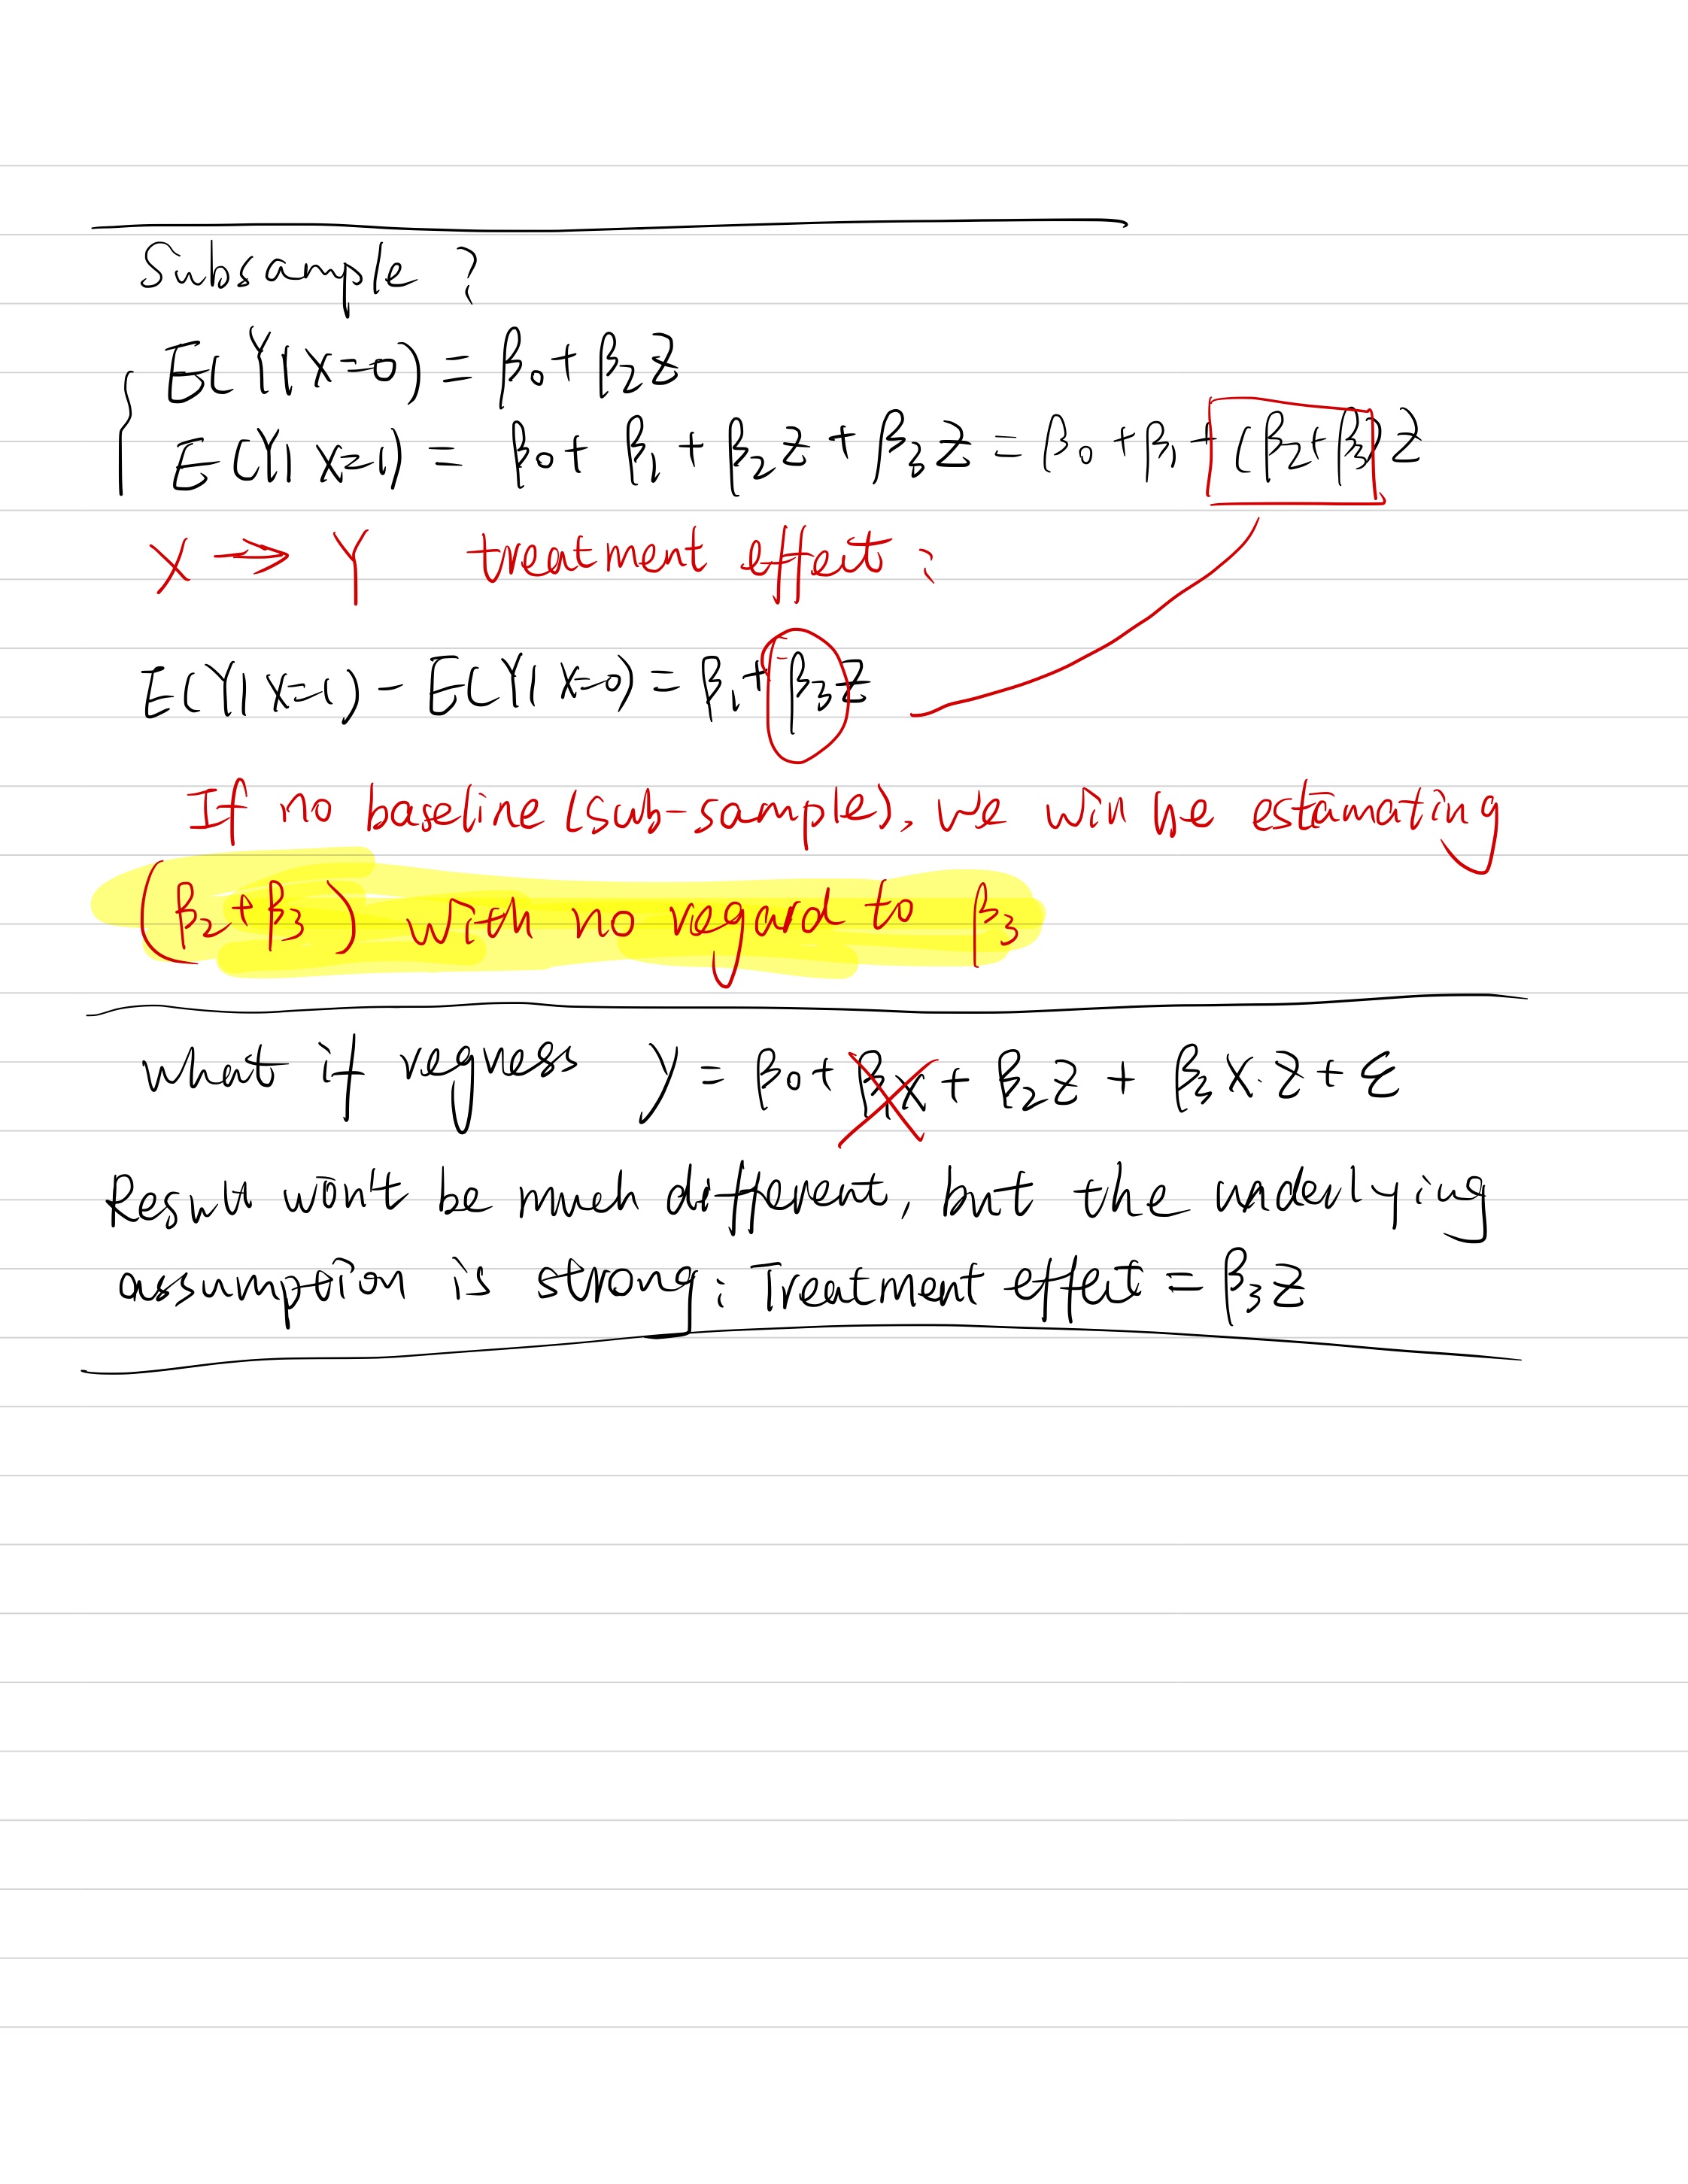 Subsample ?
E(Y|X=0) = β₀ + β₂Z
E(Y|X=1) = β₀ + β₁ + β₂Z + β₃Z = β₀ + β₁ + (β₂+β₃)Z
X → Y treatment effect :
E(Y|X=1) - E(Y|X=0) = β₁ + β₃Z
If no baseline (sub-sample), we will be estamating
(β₂+β₃) with no regard to β₃
what if regress Y = β₀ + β₁X + β₂Z + β₃X·Z + ε
Result won't be much different, but the underlying
assumption is strong: Treatment effect = β₃Z